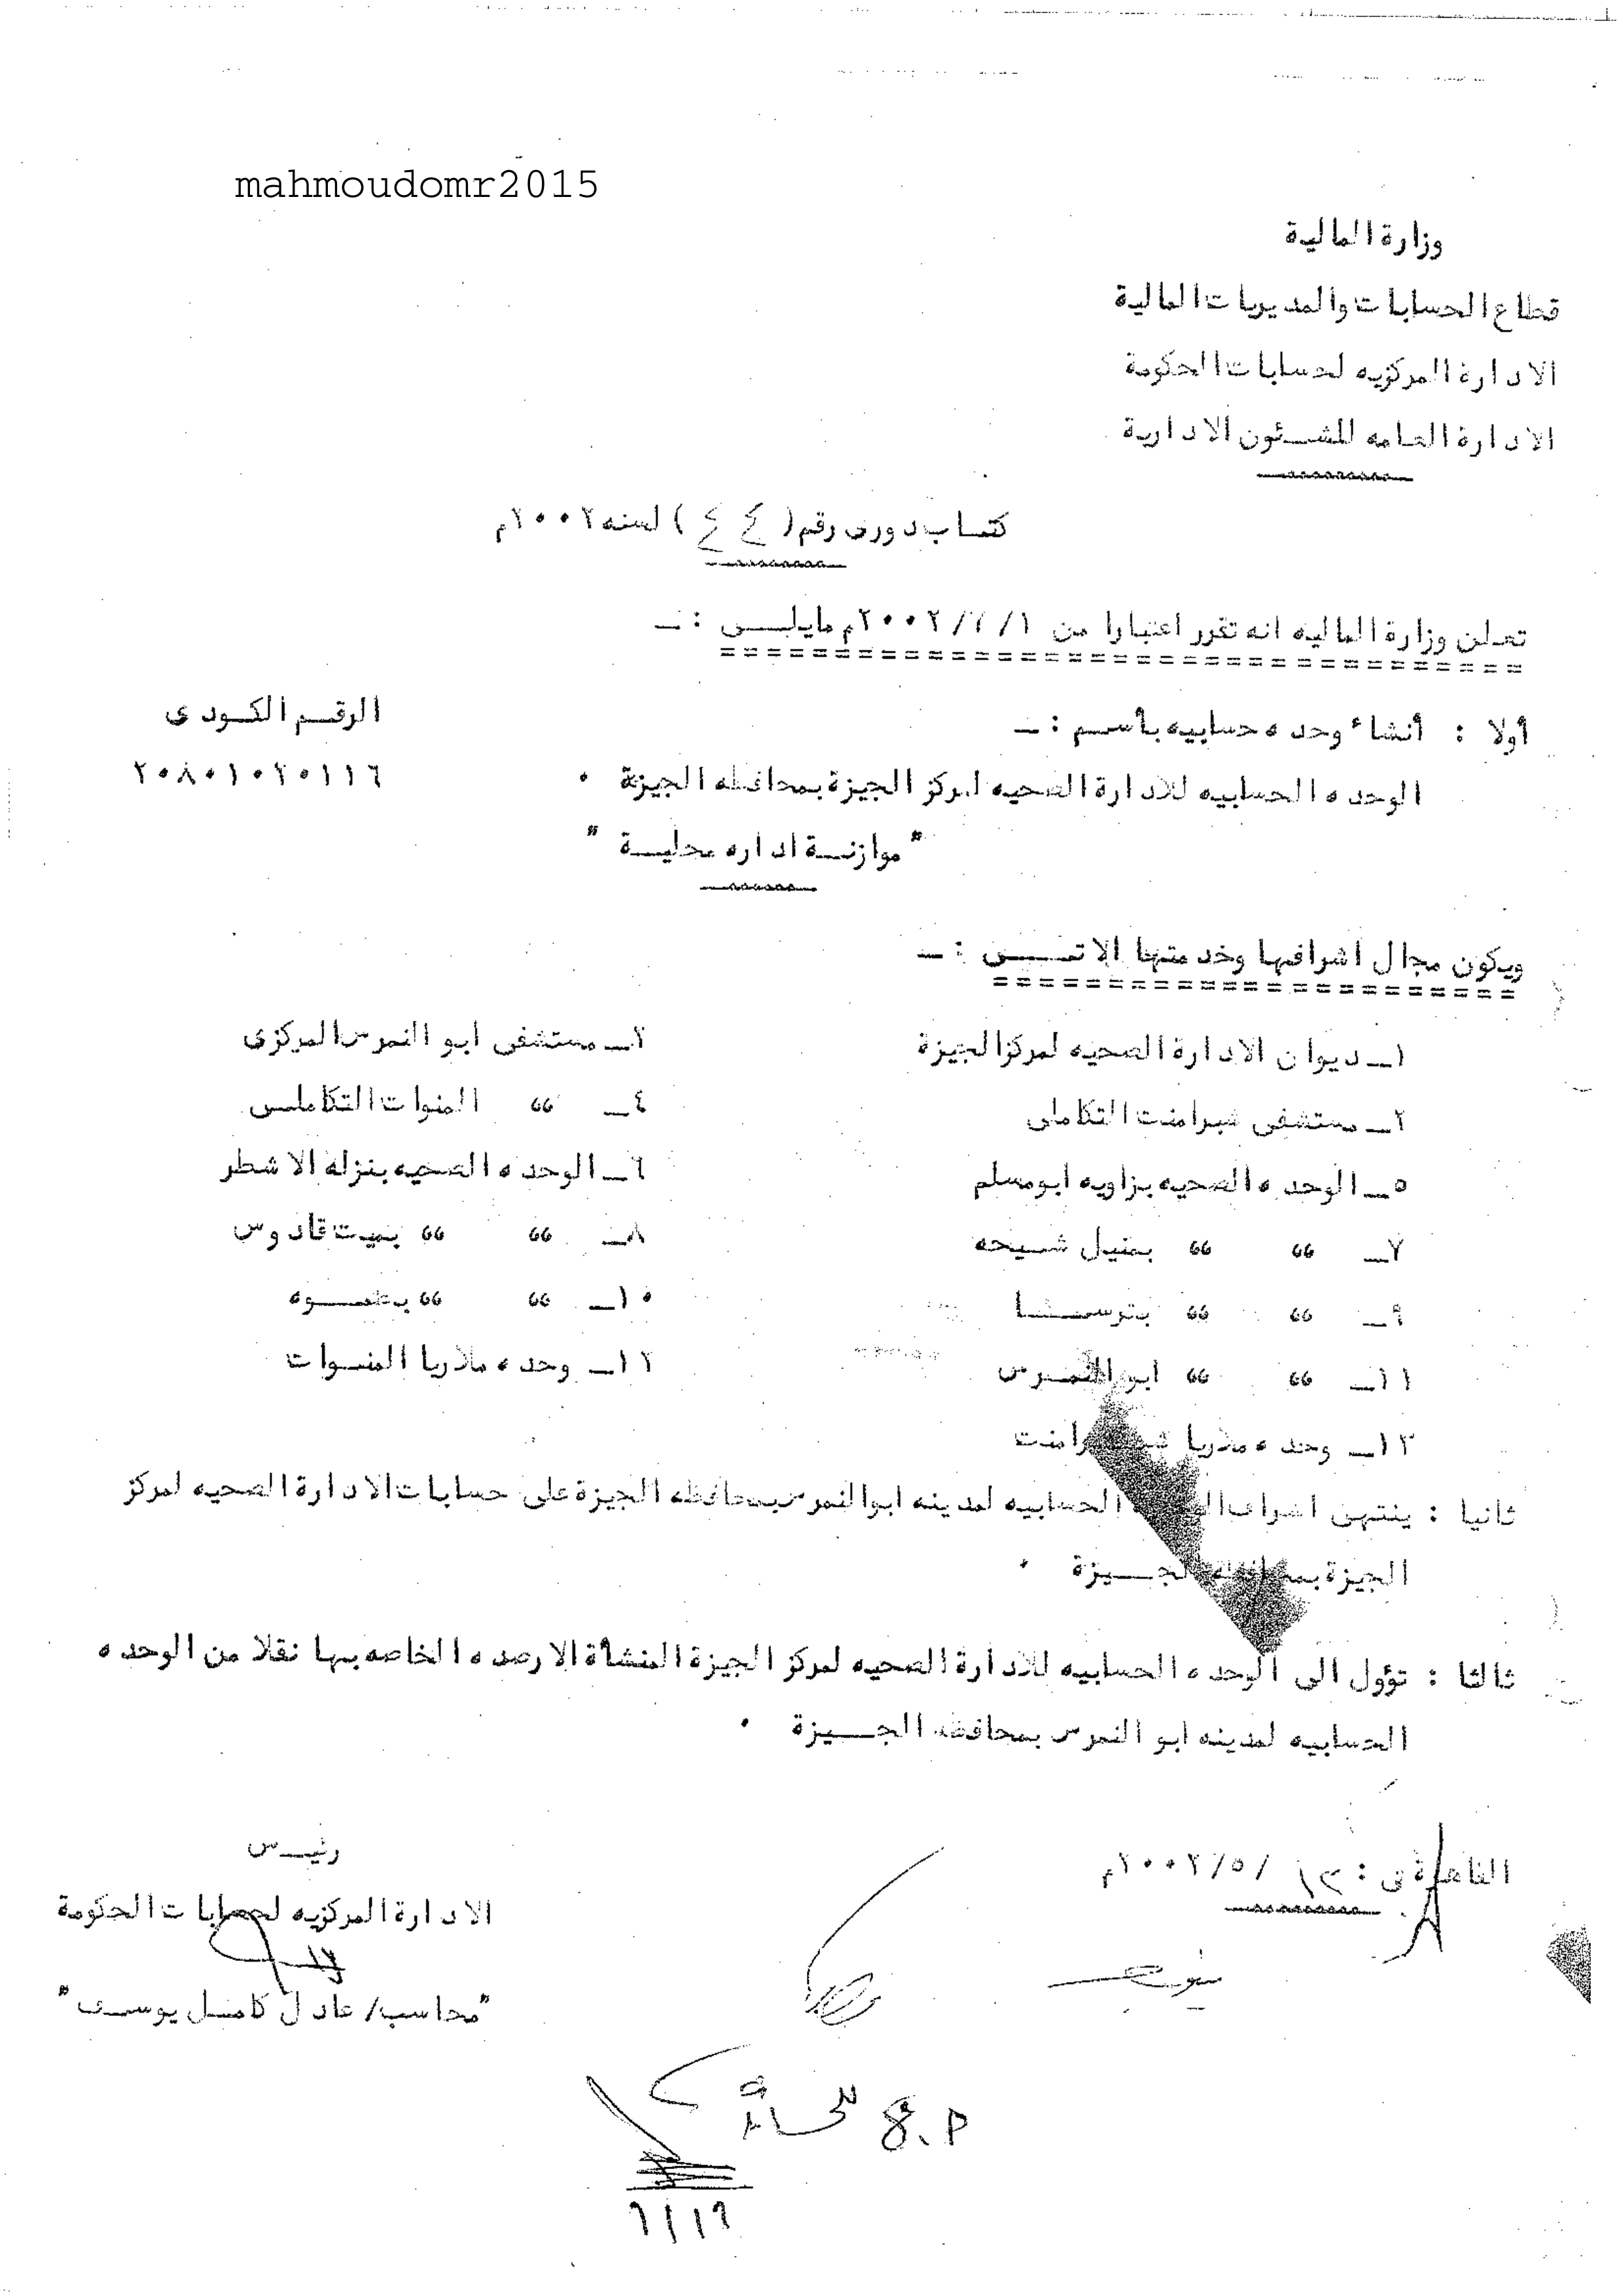 mahmoudomr2015
وزارة المالية
قطاع الحسابات والمديريات المالية
الادارة المركزيه لحسابات الحكومة
الادارة العامه للشئون الادارية
كتاب دورى رقم ( ٤٤ ) لسنه ٢٠٠٢م
تعلن وزارة الماليه انه تقرر اعتبارا من ١/٧/٢٠٠٢م مايلى : ـ
أولا : أنشاء وحده حسابيه بأسم : ـ
الرقم الكودى
الوحده الحسابيه للادارة الصحيه لمركز الجيزة بمحافظه الجيزة ٠
٢٠٨٠١٠٢٠١١٦
" موازنة اداره محلية "
ويكون مجال اشرافها وخدمتها الاتى : ـ
١ـ ديوان الادارة الصحيه لمركز الجيزة
٢ـ مستشفى ابو النمرس المركزى
٢ـ مستشفى شبرامنت التكاملى
٤ـ " المنوات التكاملى
٥ـ الوحده الصحيه بزاويه ابومسلم
٦ـ الوحده الصحيه بنزله الاشطر
٧ـ " " بمنيل شيحه
٨ـ " " بميت قادوس
٩ـ " " بترسا
١٠ـ " " بطموه
١١ـ " " ابو النمرس
١٢ـ وحده ملاريا المنوات
١٣ـ وحده ملاريا شبرامنت
ثانيا : ينتهى اشراف الحسابيه لمدينه ابوالنمرس بمحافظه الجيزة على حسابات الادارة الصحيه لمركز
الجيزة بمحافظه الجيزة ٠
ثالثا : تؤول الى الوحده الحسابيه للادارة الصحيه لمركز الجيزة المنشأة الارصده الخاصه بها نقلا من الوحده
الحسابيه لمدينه ابو النمرس بمحافظه الجيزة ٠
القاهرة فى : /٥/٢٠٠٢م
رئيس
الادارة المركزيه لحسابات الحكومة
"محاسب/ عادل كامل يوسف"